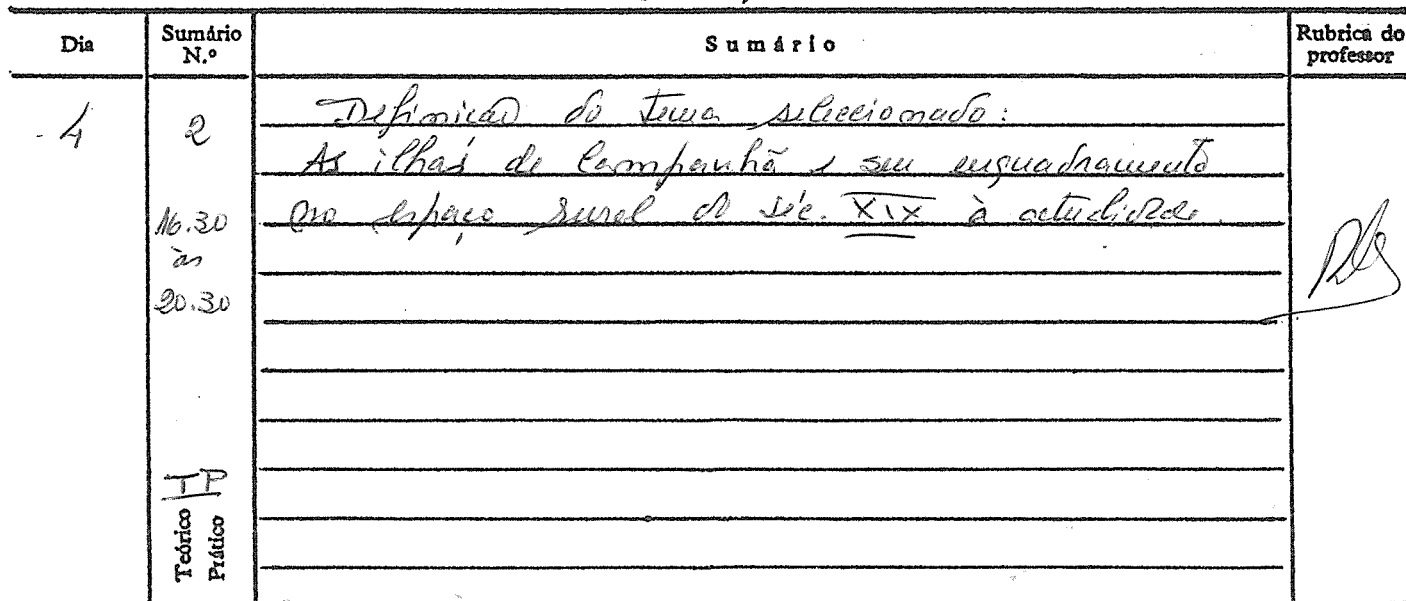 Dia
Sumário N.º
Sumário
Rubrica do professor
4
2
16.30
às
20.30
TP
Teórico
Prático
Definição do tema seleccionado:
As ilhas de Campanhã e seu enquadramento
no espaço rural do séc. XIX à actualidade.